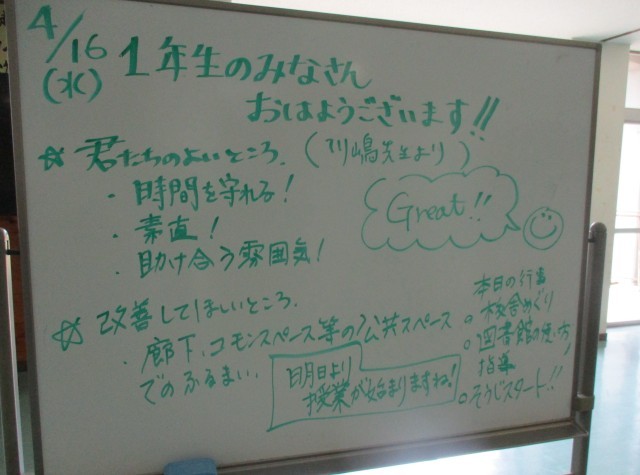 4/16
(水)
1年生のみなさん
おはようございます!!
☆ 君たちのよいところ. (川嶋先生より)
・時間を守れる!
・素直!
・助け合う雰囲気!
Great!!
☆ 改善してほしいところ.
・廊下、コモンスペース等の公共スペース
でのふるまい.
明日より
授業が始まりますね!
本日の行事
○校舎めぐり
○図書館の使い方
指導
○そうじスタート!!